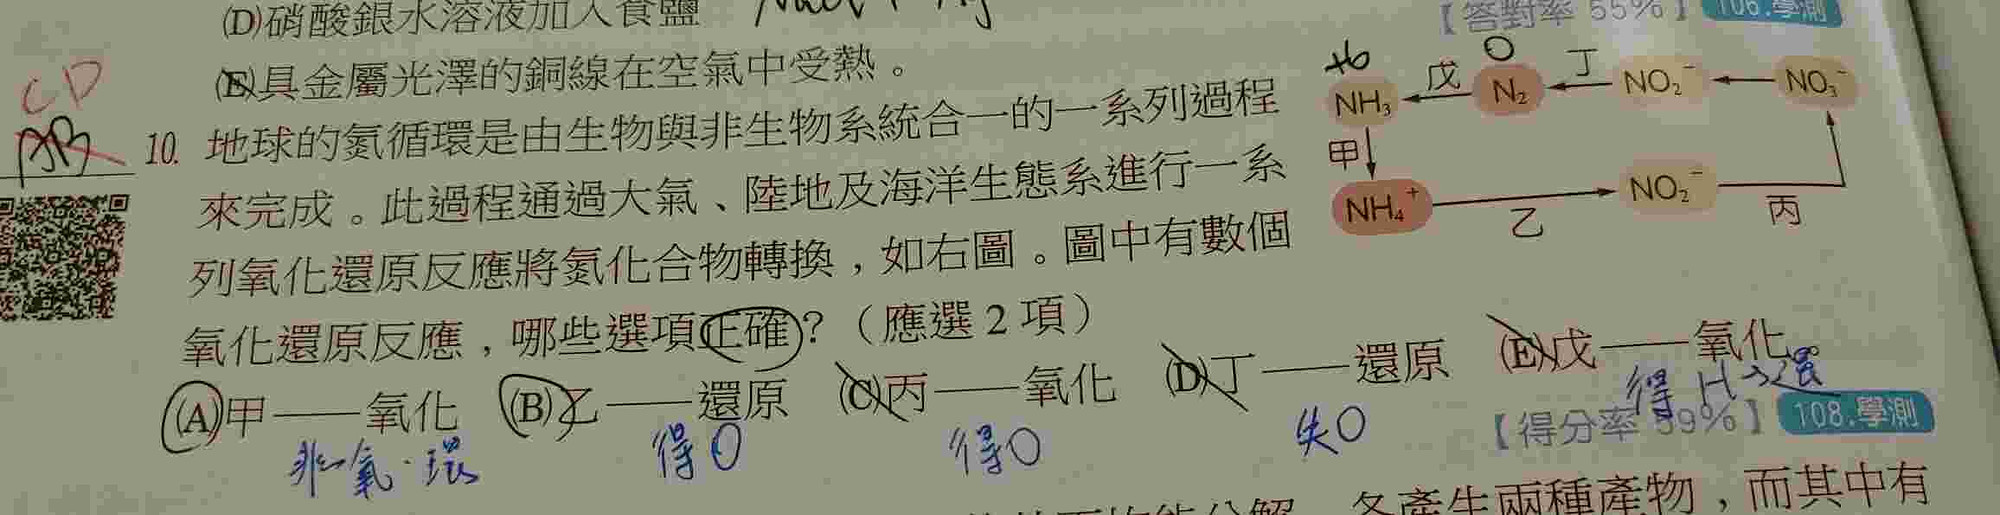 (D)硝酸銀水溶液加入食鹽
【答對率 55%】 106.學測
(E)具金屬光澤的銅線在空氣中受熱。
CD
AB
10. 地球的氮循環是由生物與非生物系統合一的一系列過程
來完成。此過程通過大氣、陸地及海洋生態系進行一系
列氧化還原反應將氮化合物轉換，如右圖。圖中有數個
氧化還原反應，哪些選項正確？（應選 2 項）
+6 0
NH₃ 戊 N₂ 丁 NO₂⁻ NO₃⁻
甲
NH₄⁺ 乙 NO₂⁻ 丙
(A)甲——氧化 (B)乙——還原 (C)丙——氧化 (D)丁——還原 (E)戊——氧化。
非氧.還 得O 得O 失O 得H→還
【得分率 59%】 108.學測
各產生兩種產物，而其中有